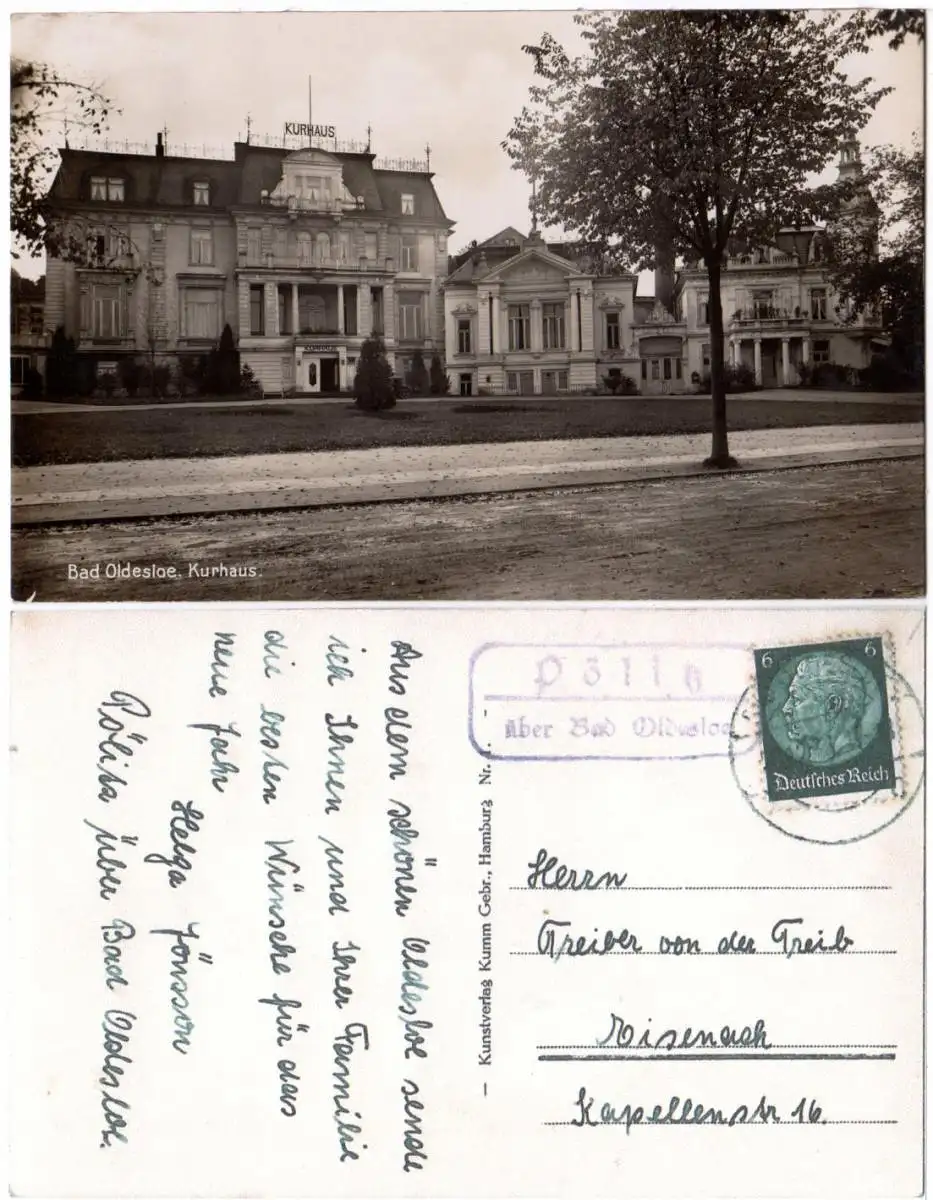 KURHAUS
KURHAUS
Bad Oldesloe. Kurhaus.
Aus dem schönen Oldesloe sende
ich Ihnen und Ihrer Familie
die besten Wünsche für das
neue Jahr
Helga Jönsson
Pölitz über Bad Oldesloe.
— Kunstverlag Kumm Gebr., Hamburg Nr.
Pölitz
über Bad Oldesloe
6 6
Deutsches Reich
Herrn
Freiher von der Treib
Eisenach
Kapellenstr 16.